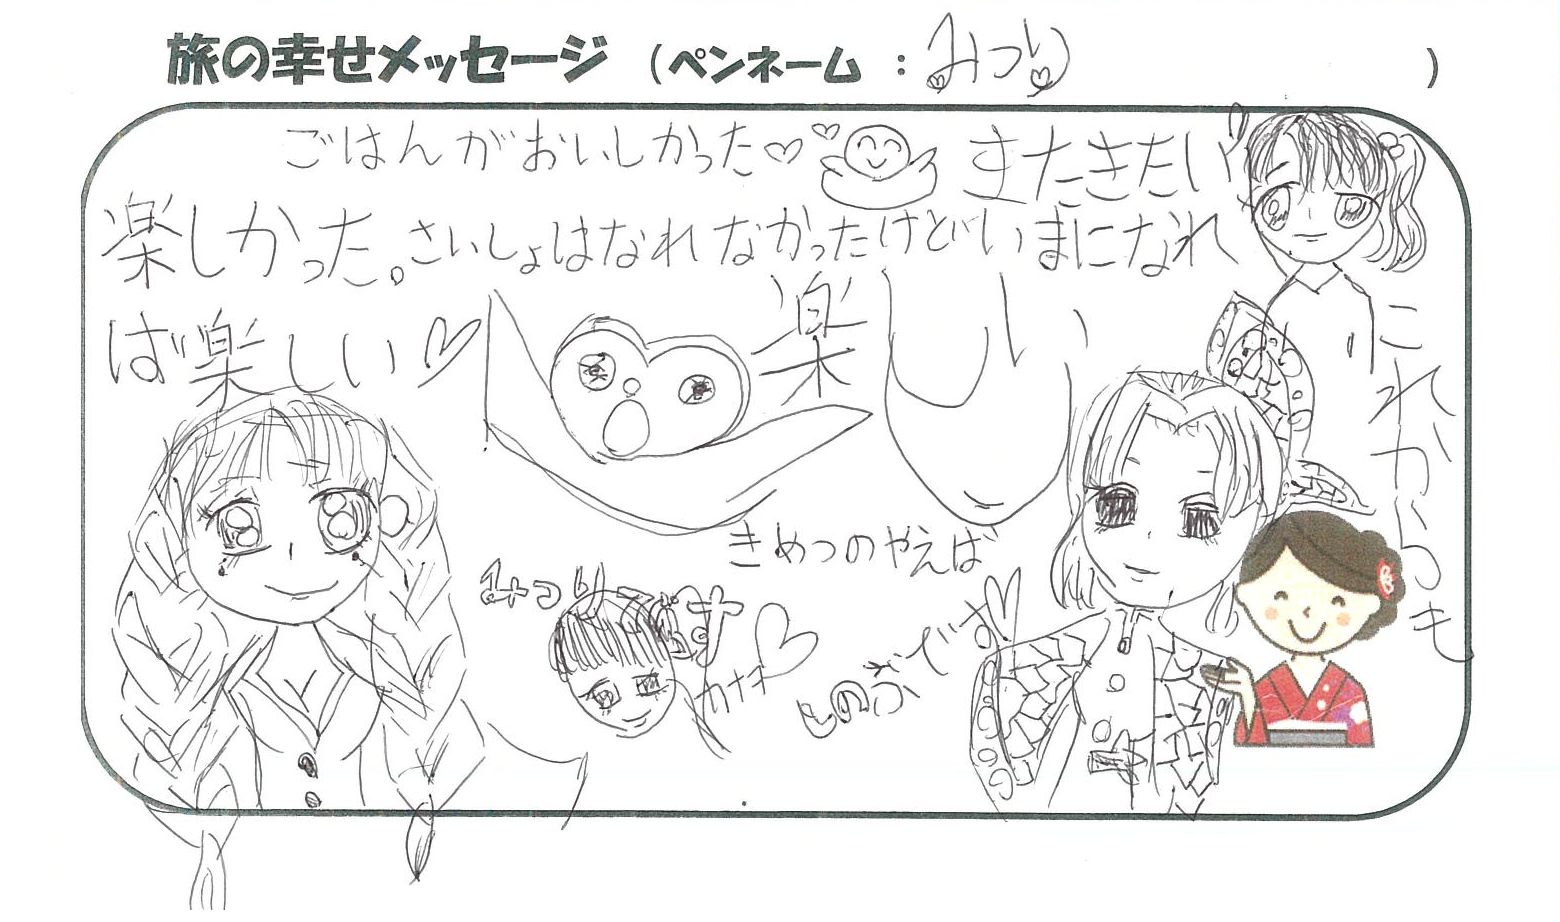 旅の幸せメッセージ (ペンネーム : みつり )
ごはんがおいしかった♡ またきたい
楽しかった。さいしょはなれなかったけどいまになれ
ば楽しい♡
楽しい
これからも
きめつのやえば
みつりです
カナヲ
しのぶです